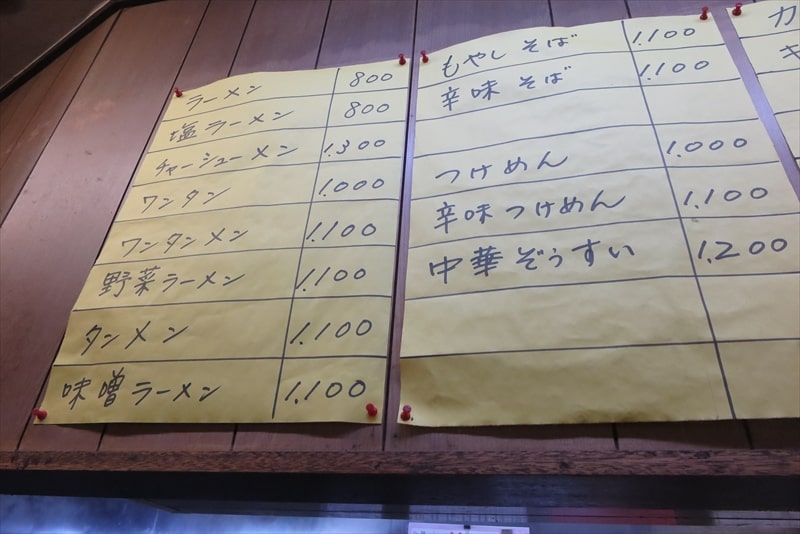 ラーメン 800
塩ラーメン 800
チャーシューメン 1.300
ワンタン 1.000
ワンタンメン 1.100
野菜ラーメン 1.100
タンメン 1.100
味噌ラーメン 1.100
もやしそば 1.100
辛味そば 1.100
つけめん 1.000
辛味つけめん 1.100
中華ぞうすい 1.200
カ
キ